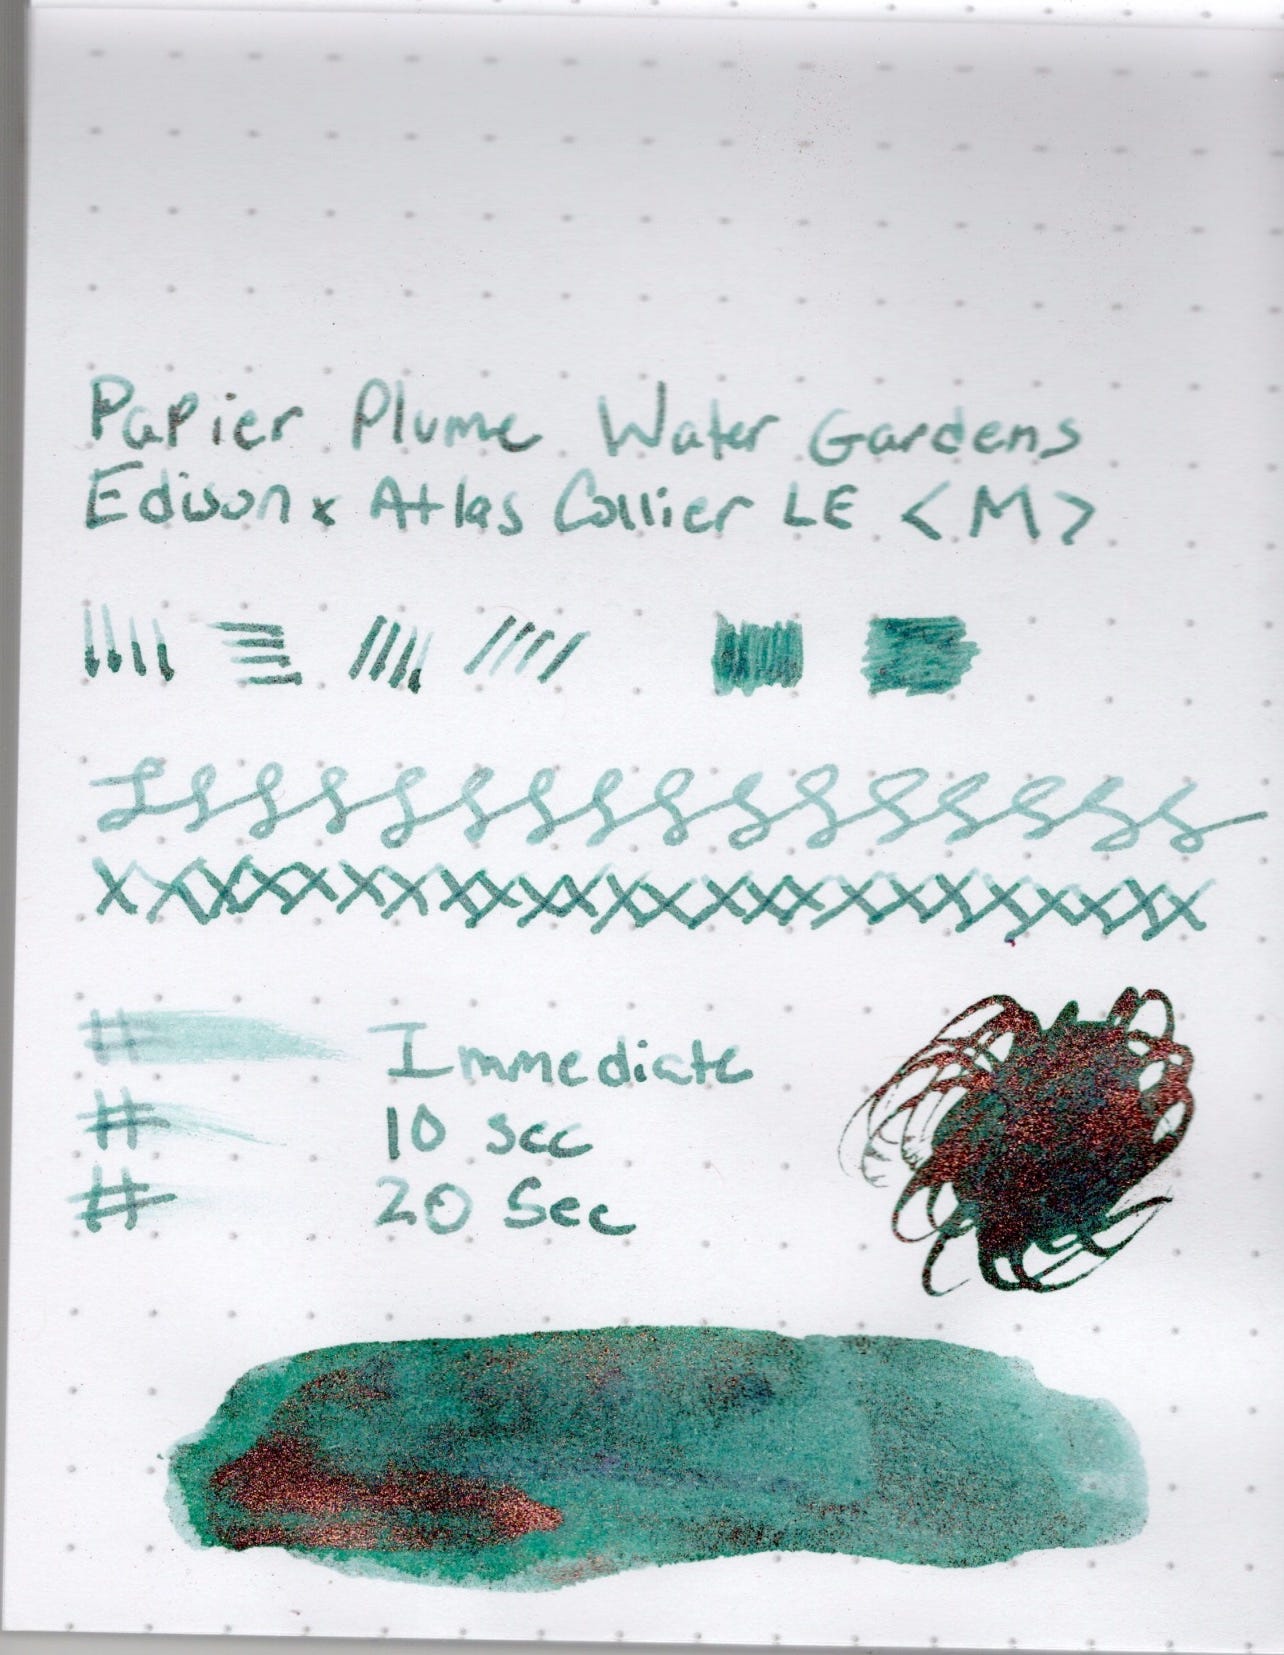 Papier Plume Water Gardens
Edison x Atlas Collier LE <M>
# Immediate
# 10 sec
# 20 Sec